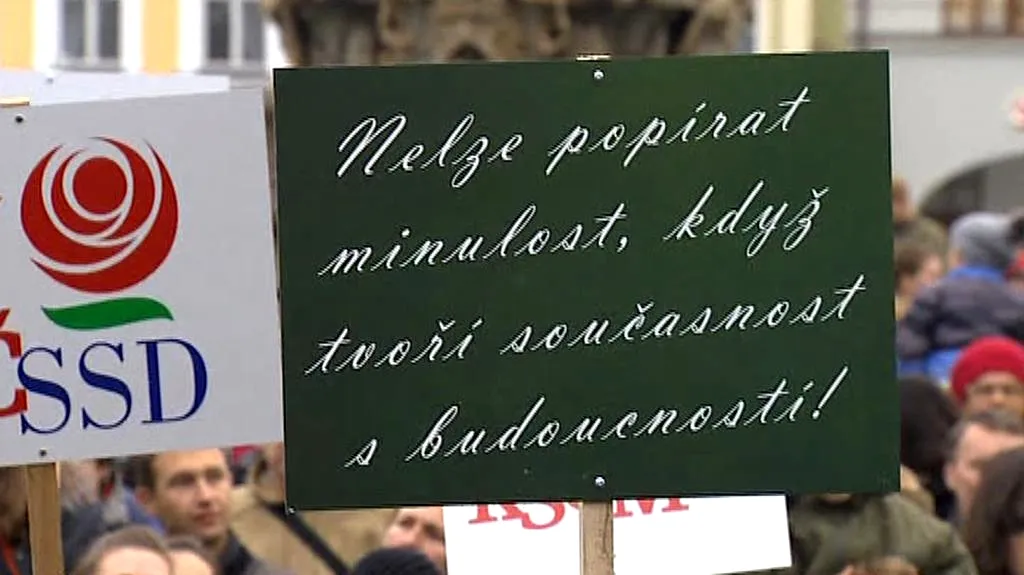 Nelze popírat
minulost, když
tvoří současnost
s budoucností!
ČSSD
KSČM